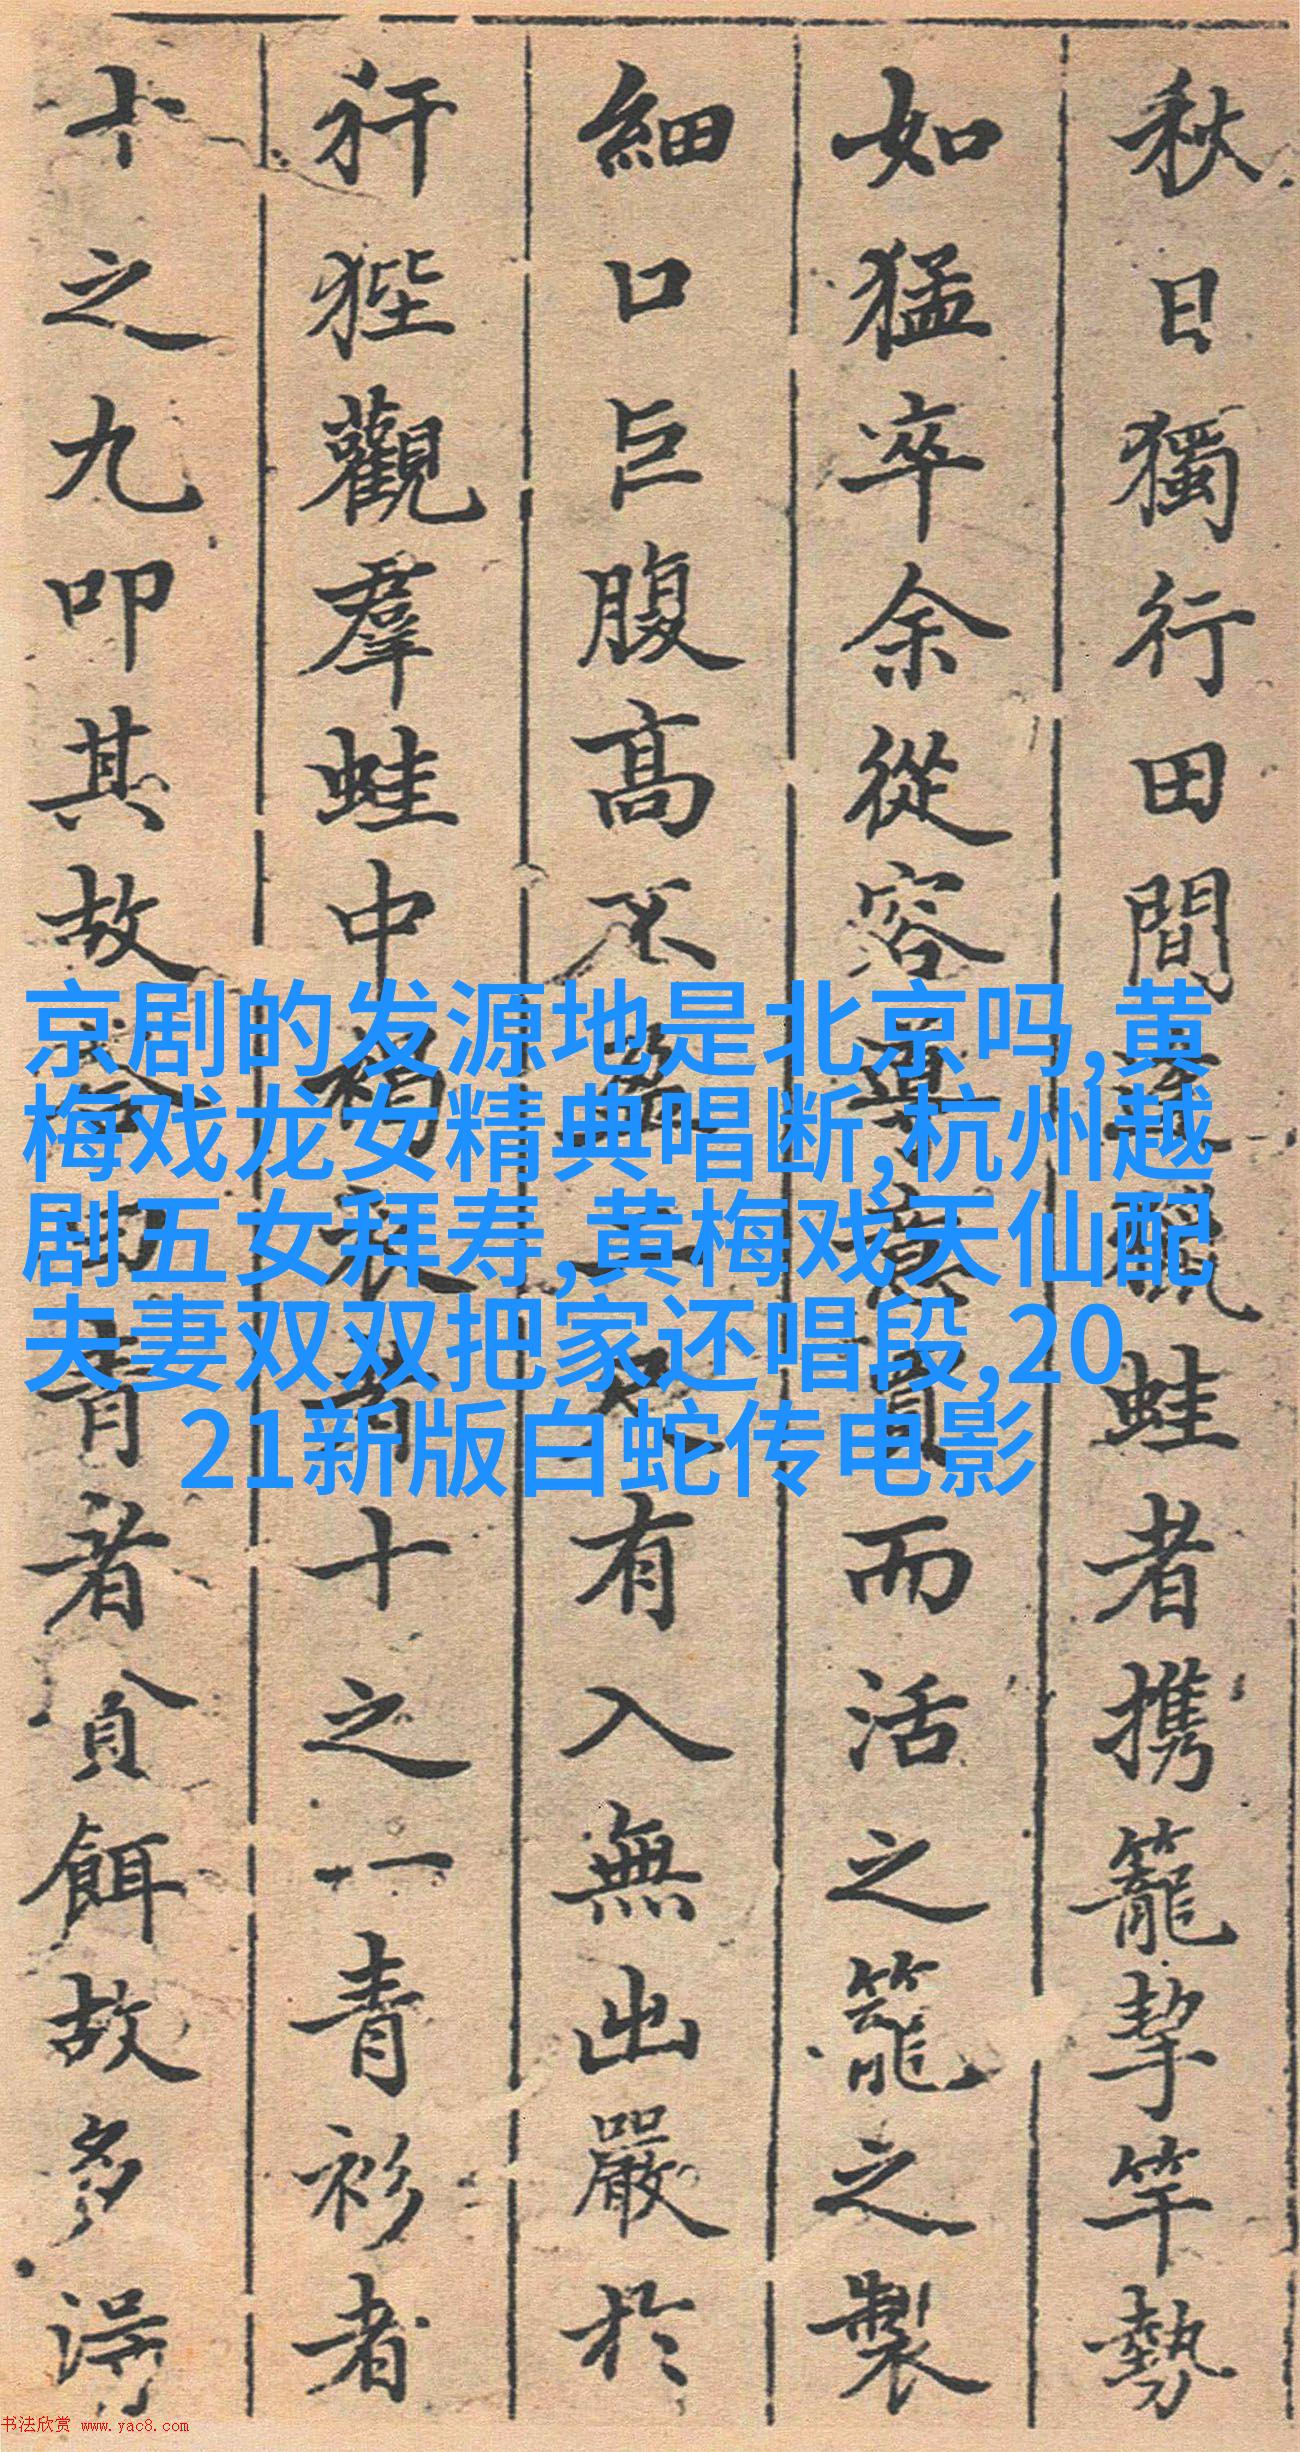 秋日獨行田間
蛙者携籠挈竿勢
如猛卒余從容
而活之籠之製
細口巨腹高不
有入無出嚴於
犴狴觀羣蛙中褐衣者十之一青衫者
十之九叩其故
青者貪餌故多得
京剧的发源地是北京吗,黄
梅戏龙女精典唱断,杭州越
剧五女拜寿,黄梅戏天仙配
夫妻双双把家还唱段,20
21新版白蛇传电影
书法欣赏 www.yac8.com